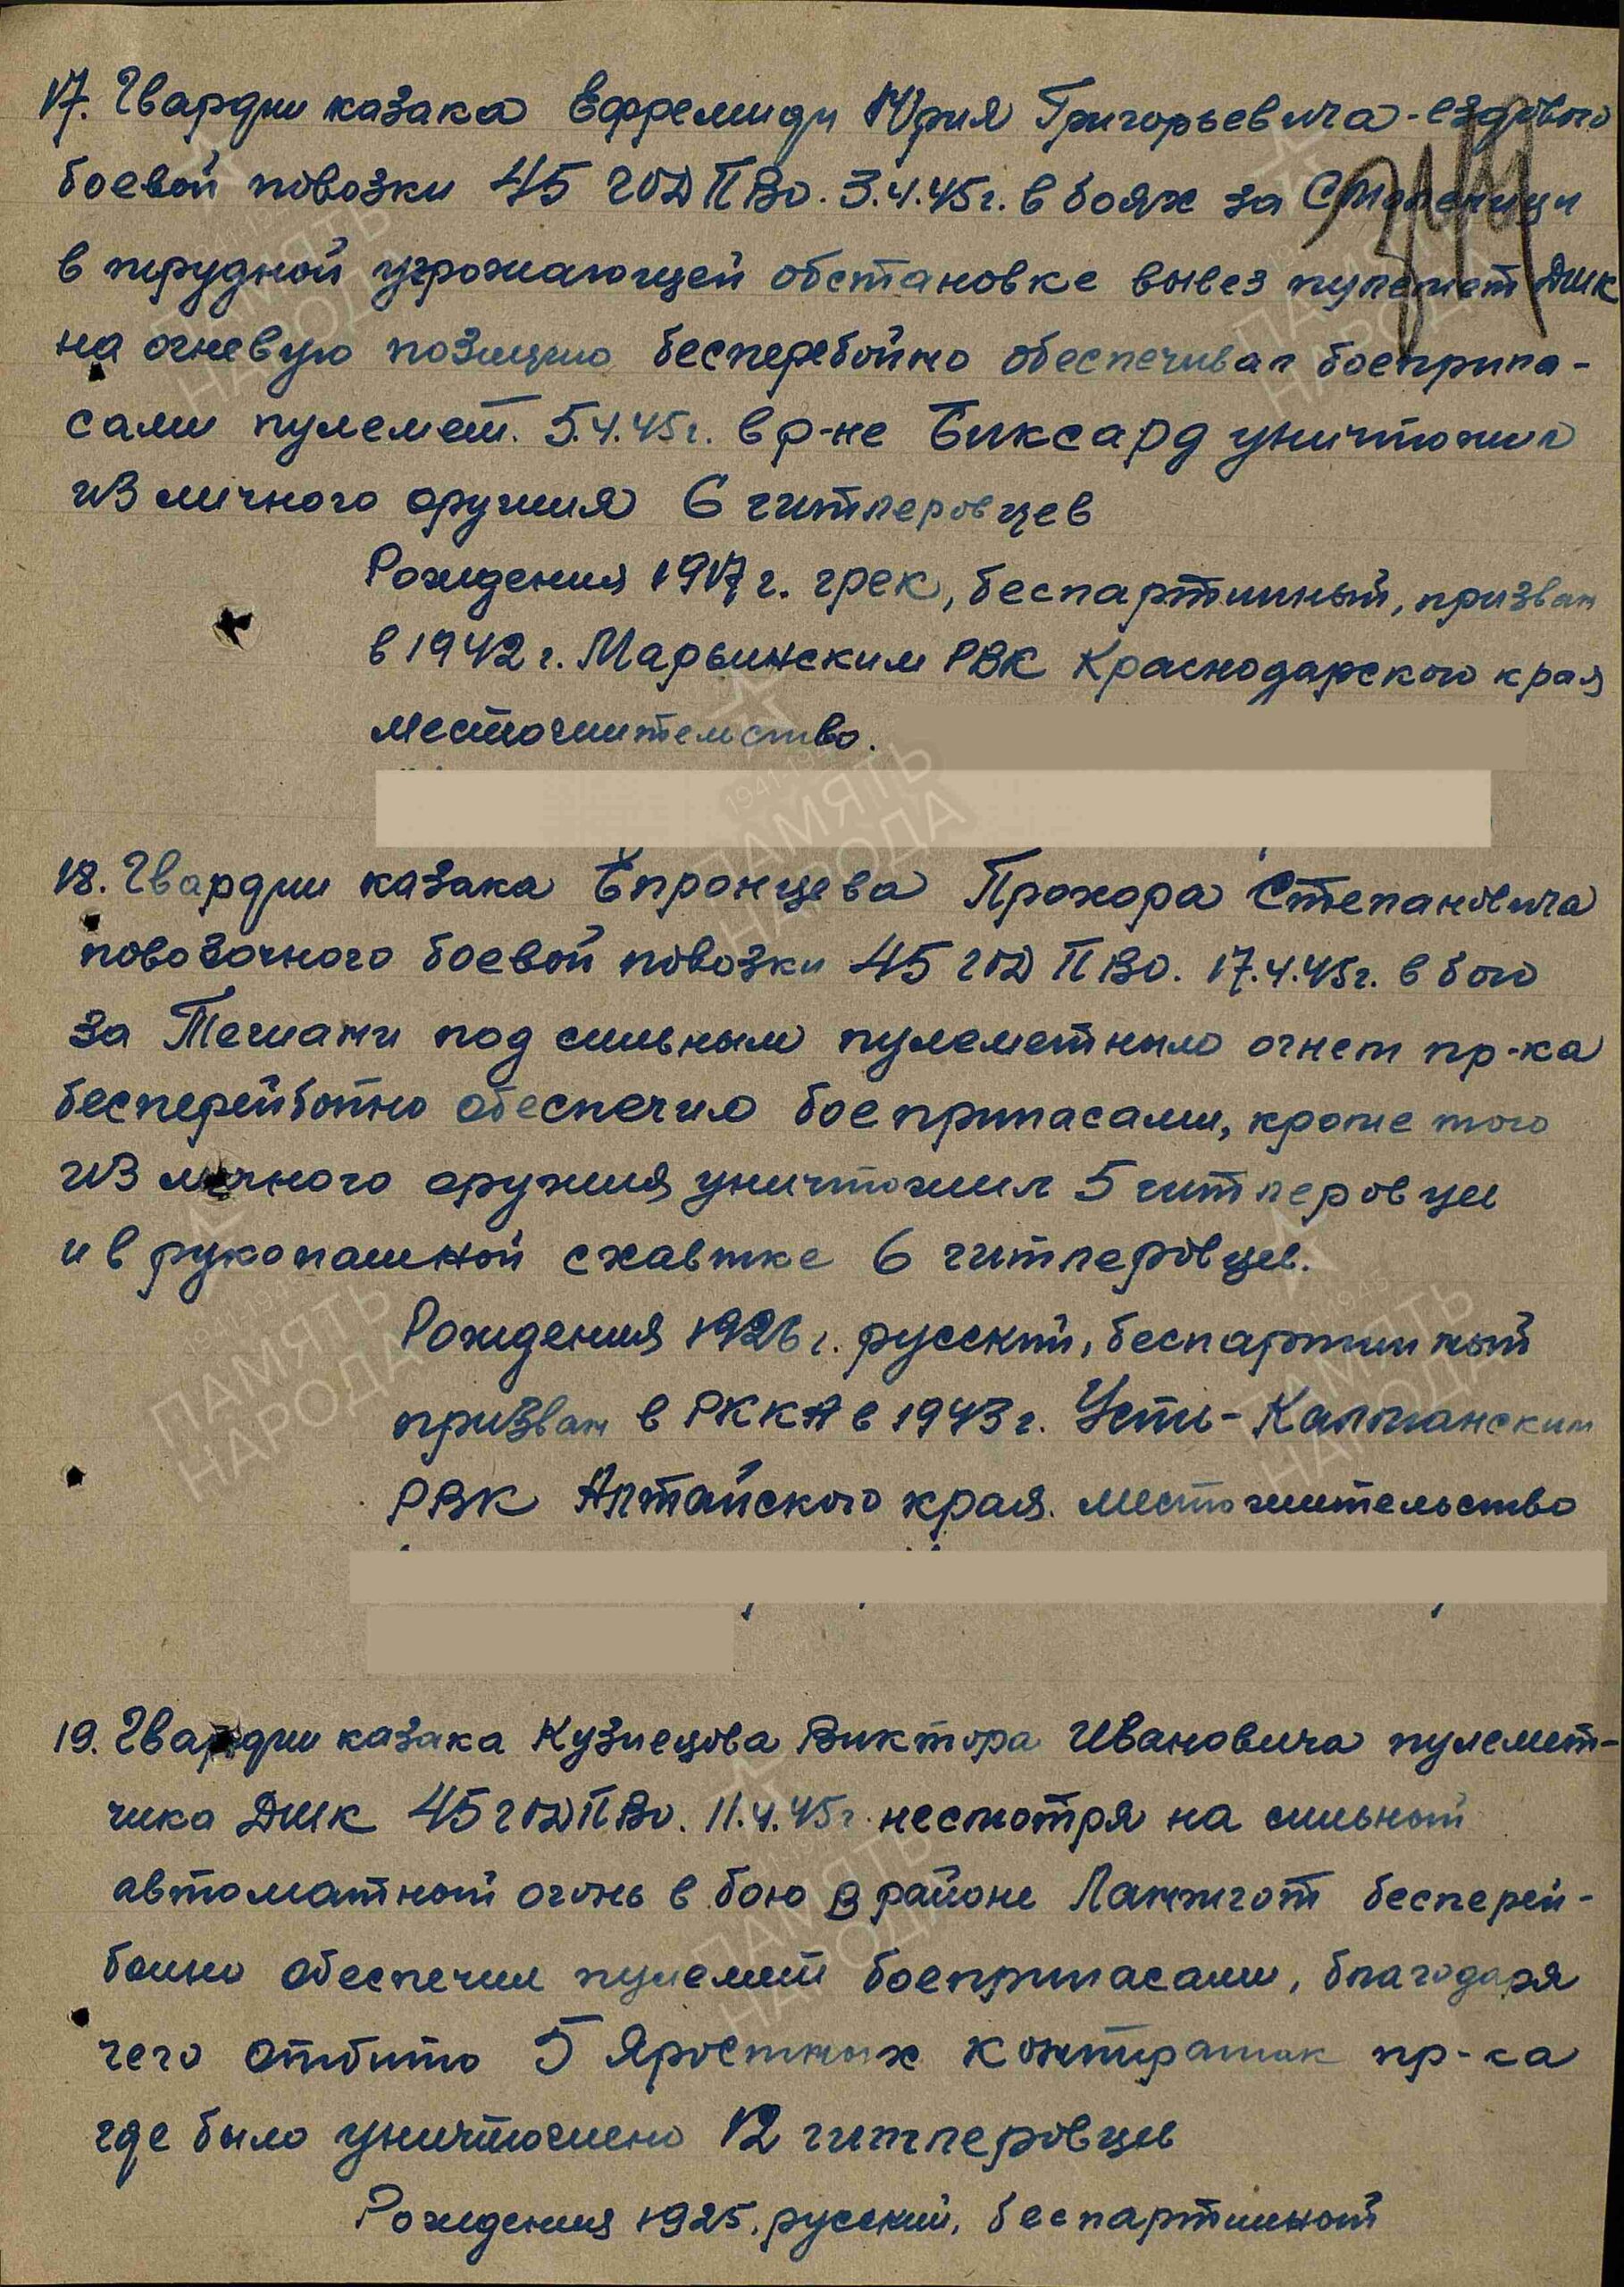 17. Гвардии казака Ефремиди Юрия Григорьевича - ездового
боевой повозки 45 гОДПВО. 3.4.45г. в боях за
в трудной угрожающей обстановке вывез пулемет ДШК
на огневую позицию бесперебойно обеспечивал боеприпа-
сами пулемет. 5.4.45г. в р-не Биксард уничтожил
из личного оружия 6 гитлеровцев
Рождения 1917 г. грек, беспартийный, призван
в 1942 г. Марьинским РВК Краснодарского края
местожительство.
18. Гвардии казака Епронцева Прохора Степановича
повозочного боевой повозки 45 гОД ПВО. 17.4.45г. в бою
за под сильным пулеметным огнем пр-ка
бесперейбойно обеспечил боеприпасами, кроме того
из личного оружия уничтожил 5 гитлеровцев
и в рукопашной схавтке 6 гитлеровцев.
Рождения 1926 г. русский, беспартийный
призван в РККА в 1943 г. Усть-Калманским
РВК Алтайского края. местожительство
19. Гвардии казака Кузнецова Виктора Ивановича пулемет-
чика ДШК 45 гОДПВО. 11.4.45г. несмотря на сильный
автоматный огонь в бою в районе Ланжгот бесперей-
бойно обеспечил пулемет боеприпасами, благодаря
чего отбито 5 яростных контратак пр-ка
где было уничтожено 12 гитлеровцев
Рождения 1925, русский, беспартийный
ПАМЯТЬ НАРОДА